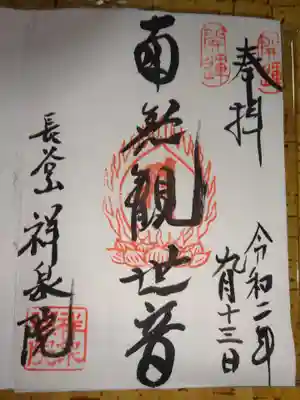 奉拝
令和二年
九月十三日
南無観世音
長谷山 祥泉院
開運